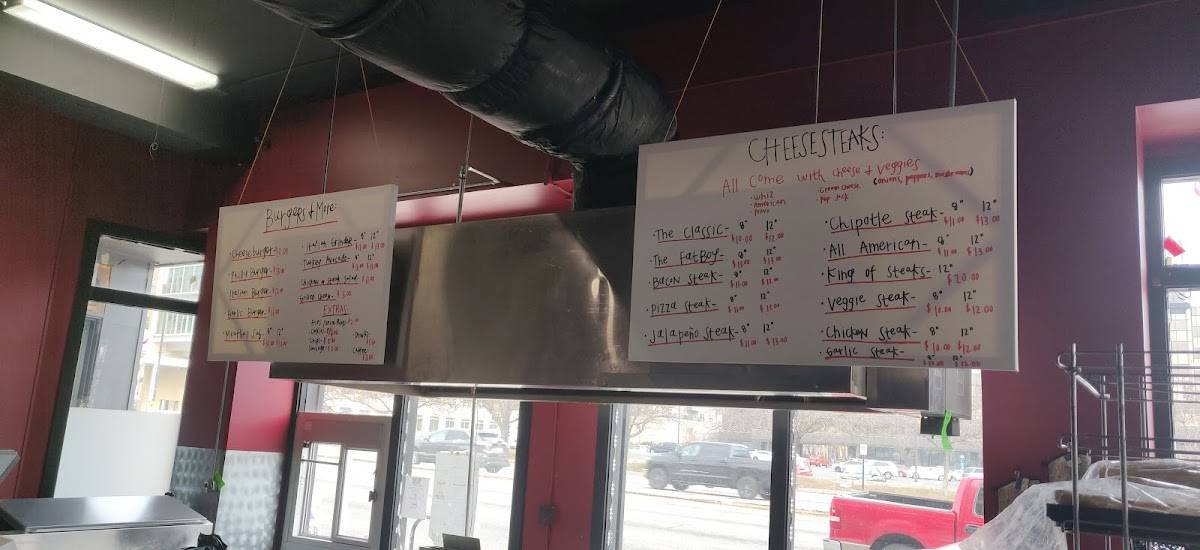 Burgers & More:
Cheeseburger-
Philly Burger-
Italian Burger-
Garlic Burger-
Meatball Sub- 8" 12"
• Italian Grinder- 8" 12"
Turkey Avocado-
Grilled Cheese-
EXTRAS
Drinks
Coffee
CHEESESTEAKS:
All come with cheese & veggies
(onions, peppers, mushrooms)
• Whiz
• American
• Provo
• Cream cheese
• Pep jack
• The Classic- 8" 12"
$10.00 $12.00
• The FatBoy- 8" 12"
$11.00 $13.00
• Bacon Steak- 8" 12"
$11.00 $13.00
• Pizza Steak- 8" 12"
$11.00 $13.00
• Jalapeño Steak- 8" 12"
$11.00 $13.00
• Chipotle Steak- 8" 12"
$11.00 $13.00
• All American- 8" 12"
$11.00 $13.00
• King of Steaks- 12"
$20.00
• Veggie Steak- 8" 12"
$10.00 $12.00
• Chicken Steak- 8" 12"
$10.00 $12.00
• Garlic Steak- 8" 12"